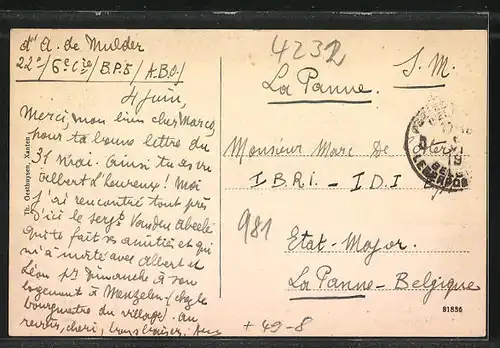 dʳ A. de Mulder
22ᵉ/6ᵉ Cⁱᵉ/B.P.5/A.B.O/
4 juin,
Merci, mon bien cher Marc,
pour ta bonne lettre du
31 mai. Ainsi tu as vu
Albert L'heureux! Moi
j'ai rencontré tout près
d'ici le sergᵗ Vanden Abeele
qui te fait ses amitiés et qui
m'a invité avec Albert et
Léon pʳ Dimanche à son
logement à Menzelen (chez le
bourgmestre du village). Au
revoir, chéri, bons baisers.
Th. Gesthuysen, Xanten.
4232
S.M.
La Panne.
Monsieur Marc De
I.B.R.I - I.D.I
981
Etat-Major.
La Panne-Belgique
81836
+ 49-8